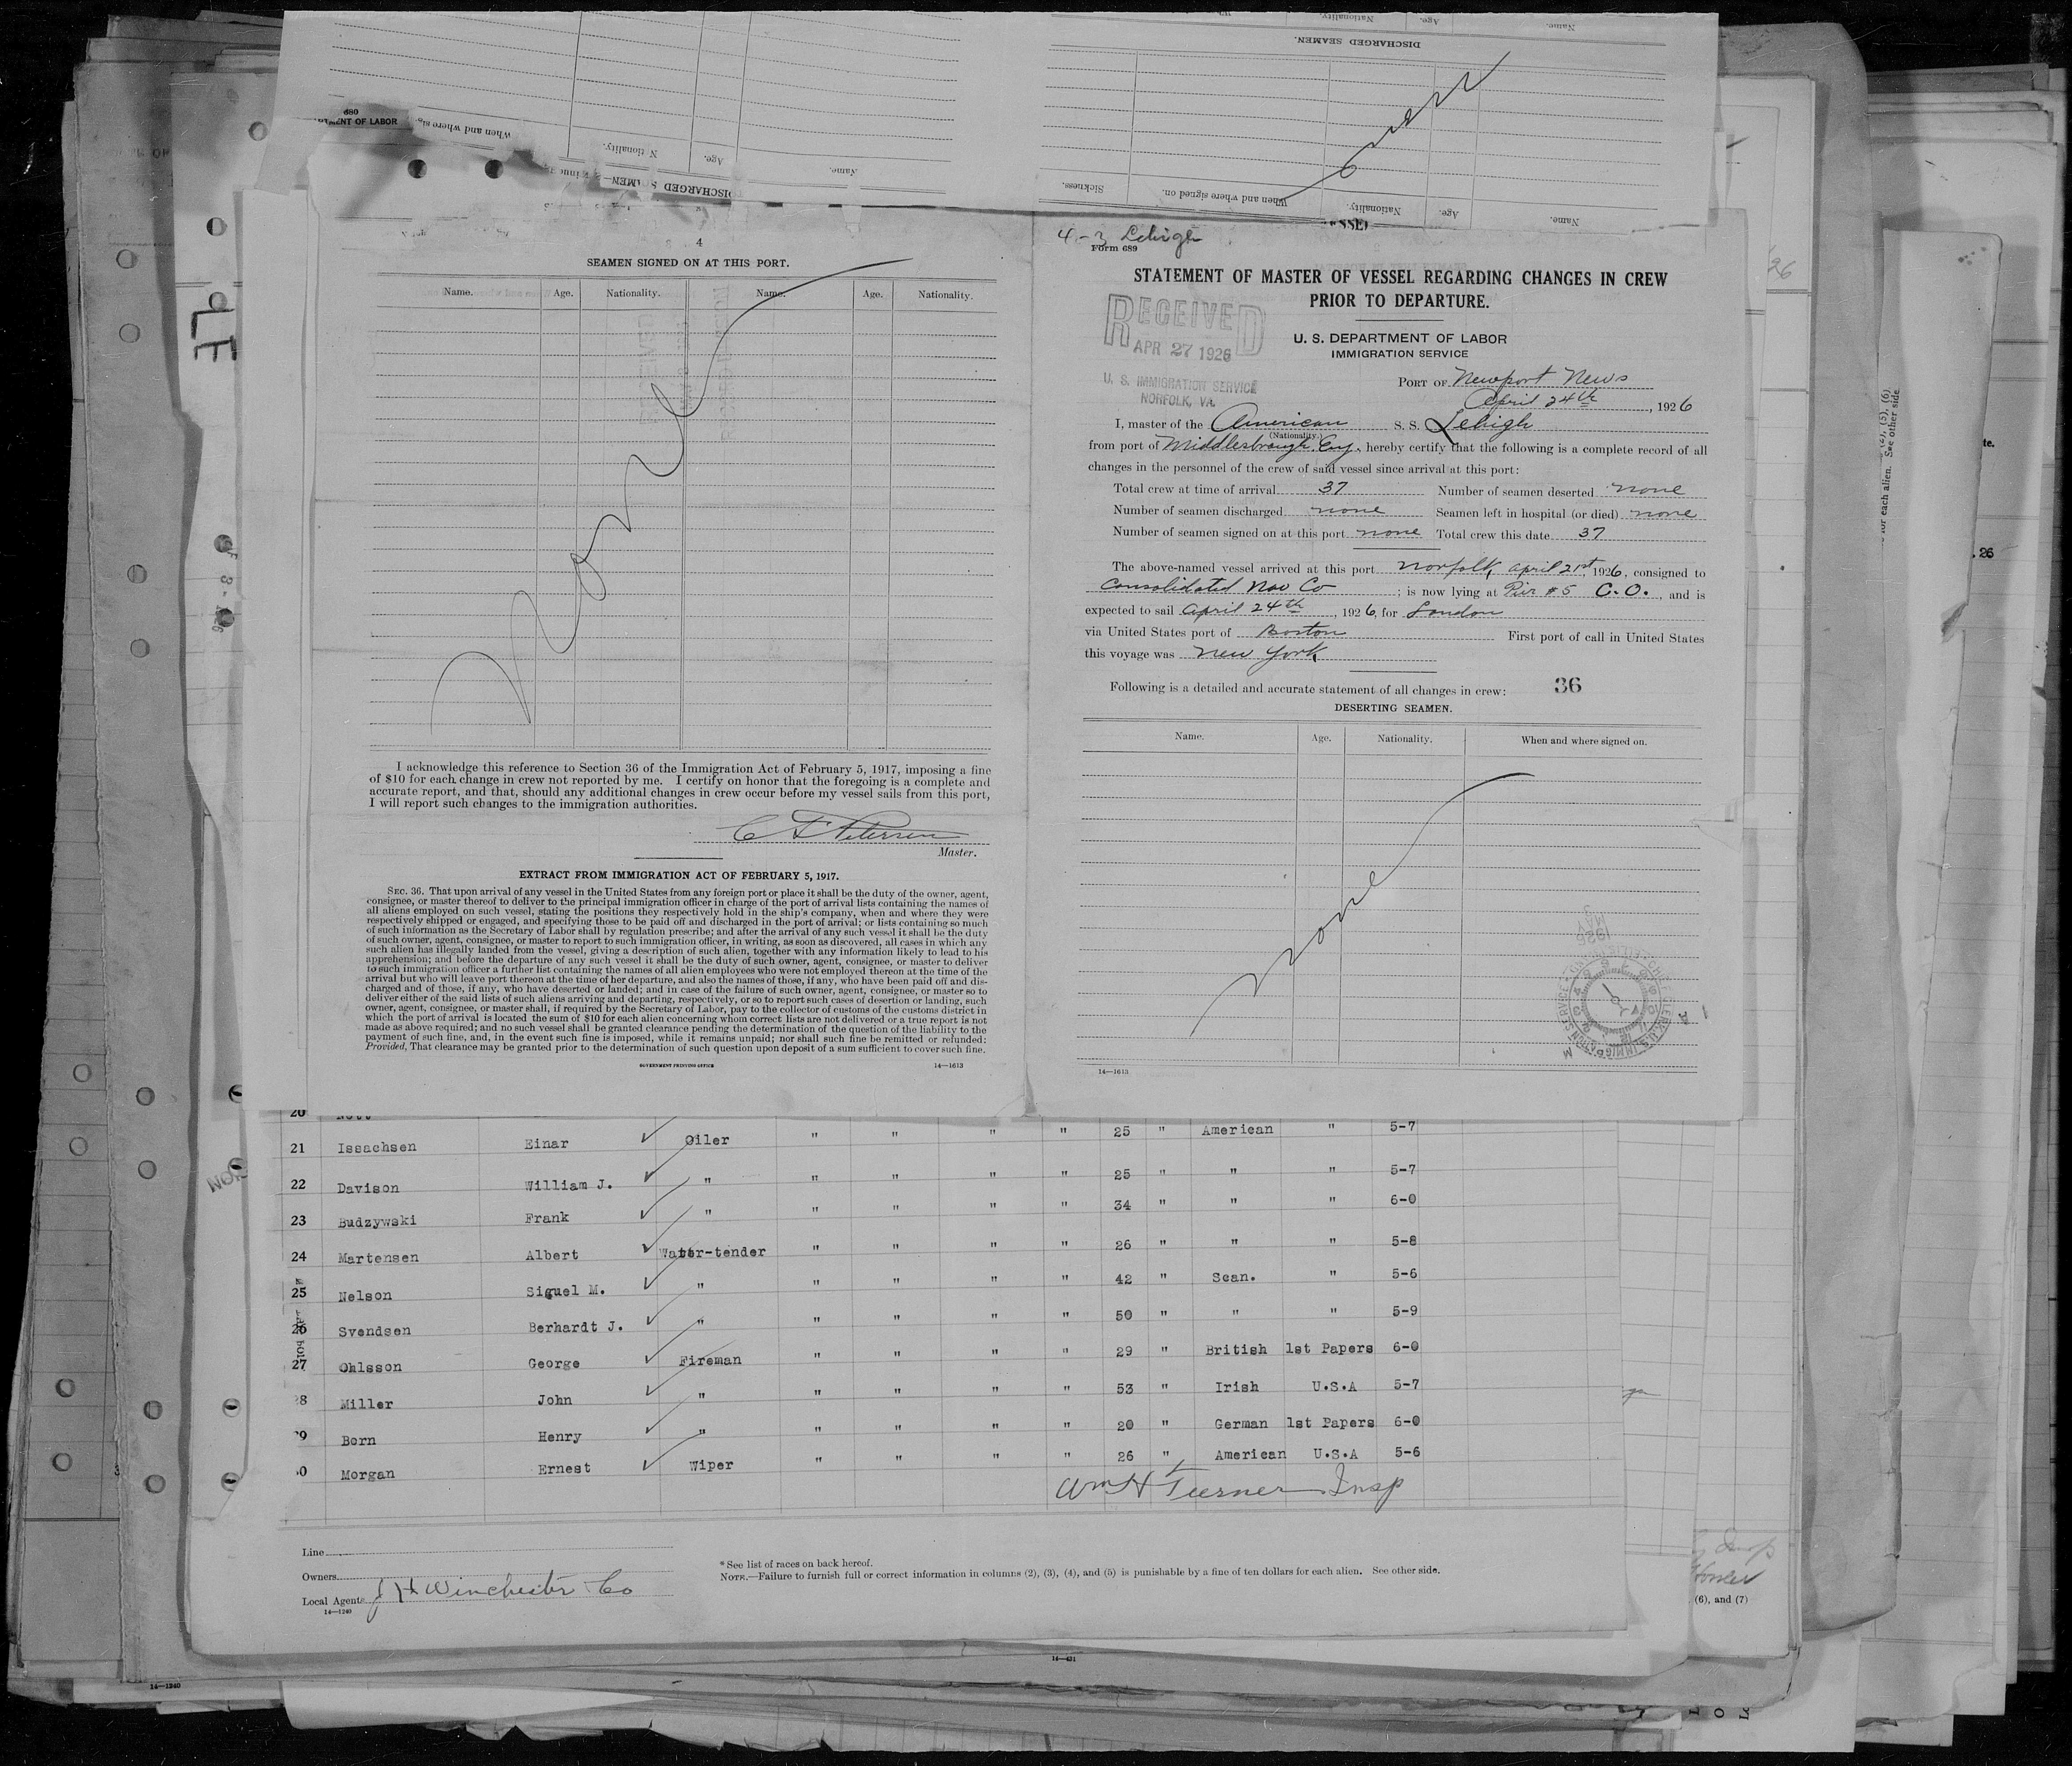 DISCHARGED SEAMEN.
Name.
Age.
Nationality.
When and where signed on.
Sickness.
none
689
MENT OF LABOR
When and where sig
N tionality.
Age.
Name.
DISCHARGED S AMEN—
4
SEAMEN SIGNED ON AT THIS PORT.
Name. Age. Nationality. Name. Age. Nationality.
None
I acknowledge this reference to Section 36 of the Immigration Act of February 5, 1917, imposing a fine
of $10 for each change in crew not reported by me. I certify on honor that the foregoing is a complete and
accurate report, and that, should any additional changes in crew occur before my vessel sails from this port,
I will report such changes to the immigration authorities.
C F Petersen
Master.
EXTRACT FROM IMMIGRATION ACT OF FEBRUARY 5, 1917.
SEC. 36. That upon arrival of any vessel in the United States from any foreign port or place it shall be the duty of the owner, agent,
consignee, or master thereof to deliver to the principal immigration officer in charge of the port of arrival lists containing the names of
all aliens employed on such vessel, stating the positions they respectively hold in the ship's company, when and where they were
respectively shipped or engaged, and specifying those to be paid off and discharged in the port of arrival; or lists containing so much
of such information as the Secretary of Labor shall by regulation prescribe; and after the arrival of any such vessel it shall be the duty
of such owner, agent, consignee, or master to report to such immigration officer, in writing, as soon as discovered, all cases in which any
such alien has illegally landed from the vessel, giving a description of such alien, together with any information likely to lead to his
apprehension; and before the departure of any such vessel it shall be the duty of such owner, agent, consignee, or master to deliver
to such immigration officer a further list containing the names of all alien employees who were not employed thereon at the time of the
arrival but who will leave port thereon at the time of her departure, and also the names of those, if any, who have been paid off and dis-
charged and of those, if any, who have deserted or landed; and in case of the failure of such owner, agent, consignee, or master so to
deliver either of the said lists of such aliens arriving and departing, respectively, or so to report such cases of desertion or landing, such
owner, agent, consignee, or master shall, if required by the Secretary of Labor, pay to the collector of customs of the customs district in
which the port of arrival is located the sum of $10 for each alien concerning whom correct lists are not delivered or a true report is not
made as above required; and no such vessel shall be granted clearance pending the determination of the question of the liability to the
payment of such fine, and, in the event such fine is imposed, while it remains unpaid; nor shall such fine be remitted or refunded:
Provided, That clearance may be granted prior to the determination of such question upon deposit of a sum sufficient to cover such fine.
GOVERNMENT PRINTING OFFICE 14—1613
4-3 Lehigh
Form 689
STATEMENT OF MASTER OF VESSEL REGARDING CHANGES IN CREW
PRIOR TO DEPARTURE.
RECEIVED
APR 27 1926
U. S. IMMIGRATION SERVICE
NORFOLK, VA.
U. S. DEPARTMENT OF LABOR
IMMIGRATION SERVICE
PORT OF Newport News
April 24th, 1926
I, master of the American S. S. Lehigh
(Nationality)
from port of Middlesbrough, Eng., hereby certify that the following is a complete record of all
changes in the personnel of the crew of said vessel since arrival at this port:
Total crew at time of arrival 37 Number of seamen deserted none
Number of seamen discharged none Seamen left in hospital (or died) none
Number of seamen signed on at this port none Total crew this date 37
The above-named vessel arrived at this port Norfolk, April 21st, 1926, consigned to
Consolidated Nav Co ; is now lying at Pier #5 C.O., and is
expected to sail April 24th, 1926, for London
via United States port of Boston First port of call in United States
this voyage was New York
Following is a detailed and accurate statement of all changes in crew: 36
DESERTING SEAMEN.
Name. Age. Nationality. When and where signed on.
none
14—1613
20
21 Issachsen Einar Oiler " " " " 25 " American " 5-7
22 Davison William J. " " " " " 25 " " " 5-7
23 Budzywski Frank " " " " " 34 " " " 6-0
24 Martensen Albert Water-tender " " " " 26 " " " 5-8
25 Nelson Siguel M. " " " " " 42 " Scan. " 5-6
26 Svendsen Berhardt J. " " " " " 50 " " " 5-9
27 Ohlsson George Fireman " " " " 29 " British 1st Papers 6-0
28 Miller John " " " " " 53 " Irish U.S.A 5-7
29 Born Henry " " " " " 20 " German 1st Papers 6-0
30 Morgan Ernest Wiper " " " " 26 " American U.S.A 5-6
Wm H Turner Insp
Line
Owners
Local Agents J H Winchester Co
14—1240
* See list of races on back hereof.
NOTE.—Failure to furnish full or correct information in columns (2), (3), (4), and (5) is punishable by a fine of ten dollars for each alien. See other side.
(6), and (7)
14—1240
for each alien. See other side
26
. 26